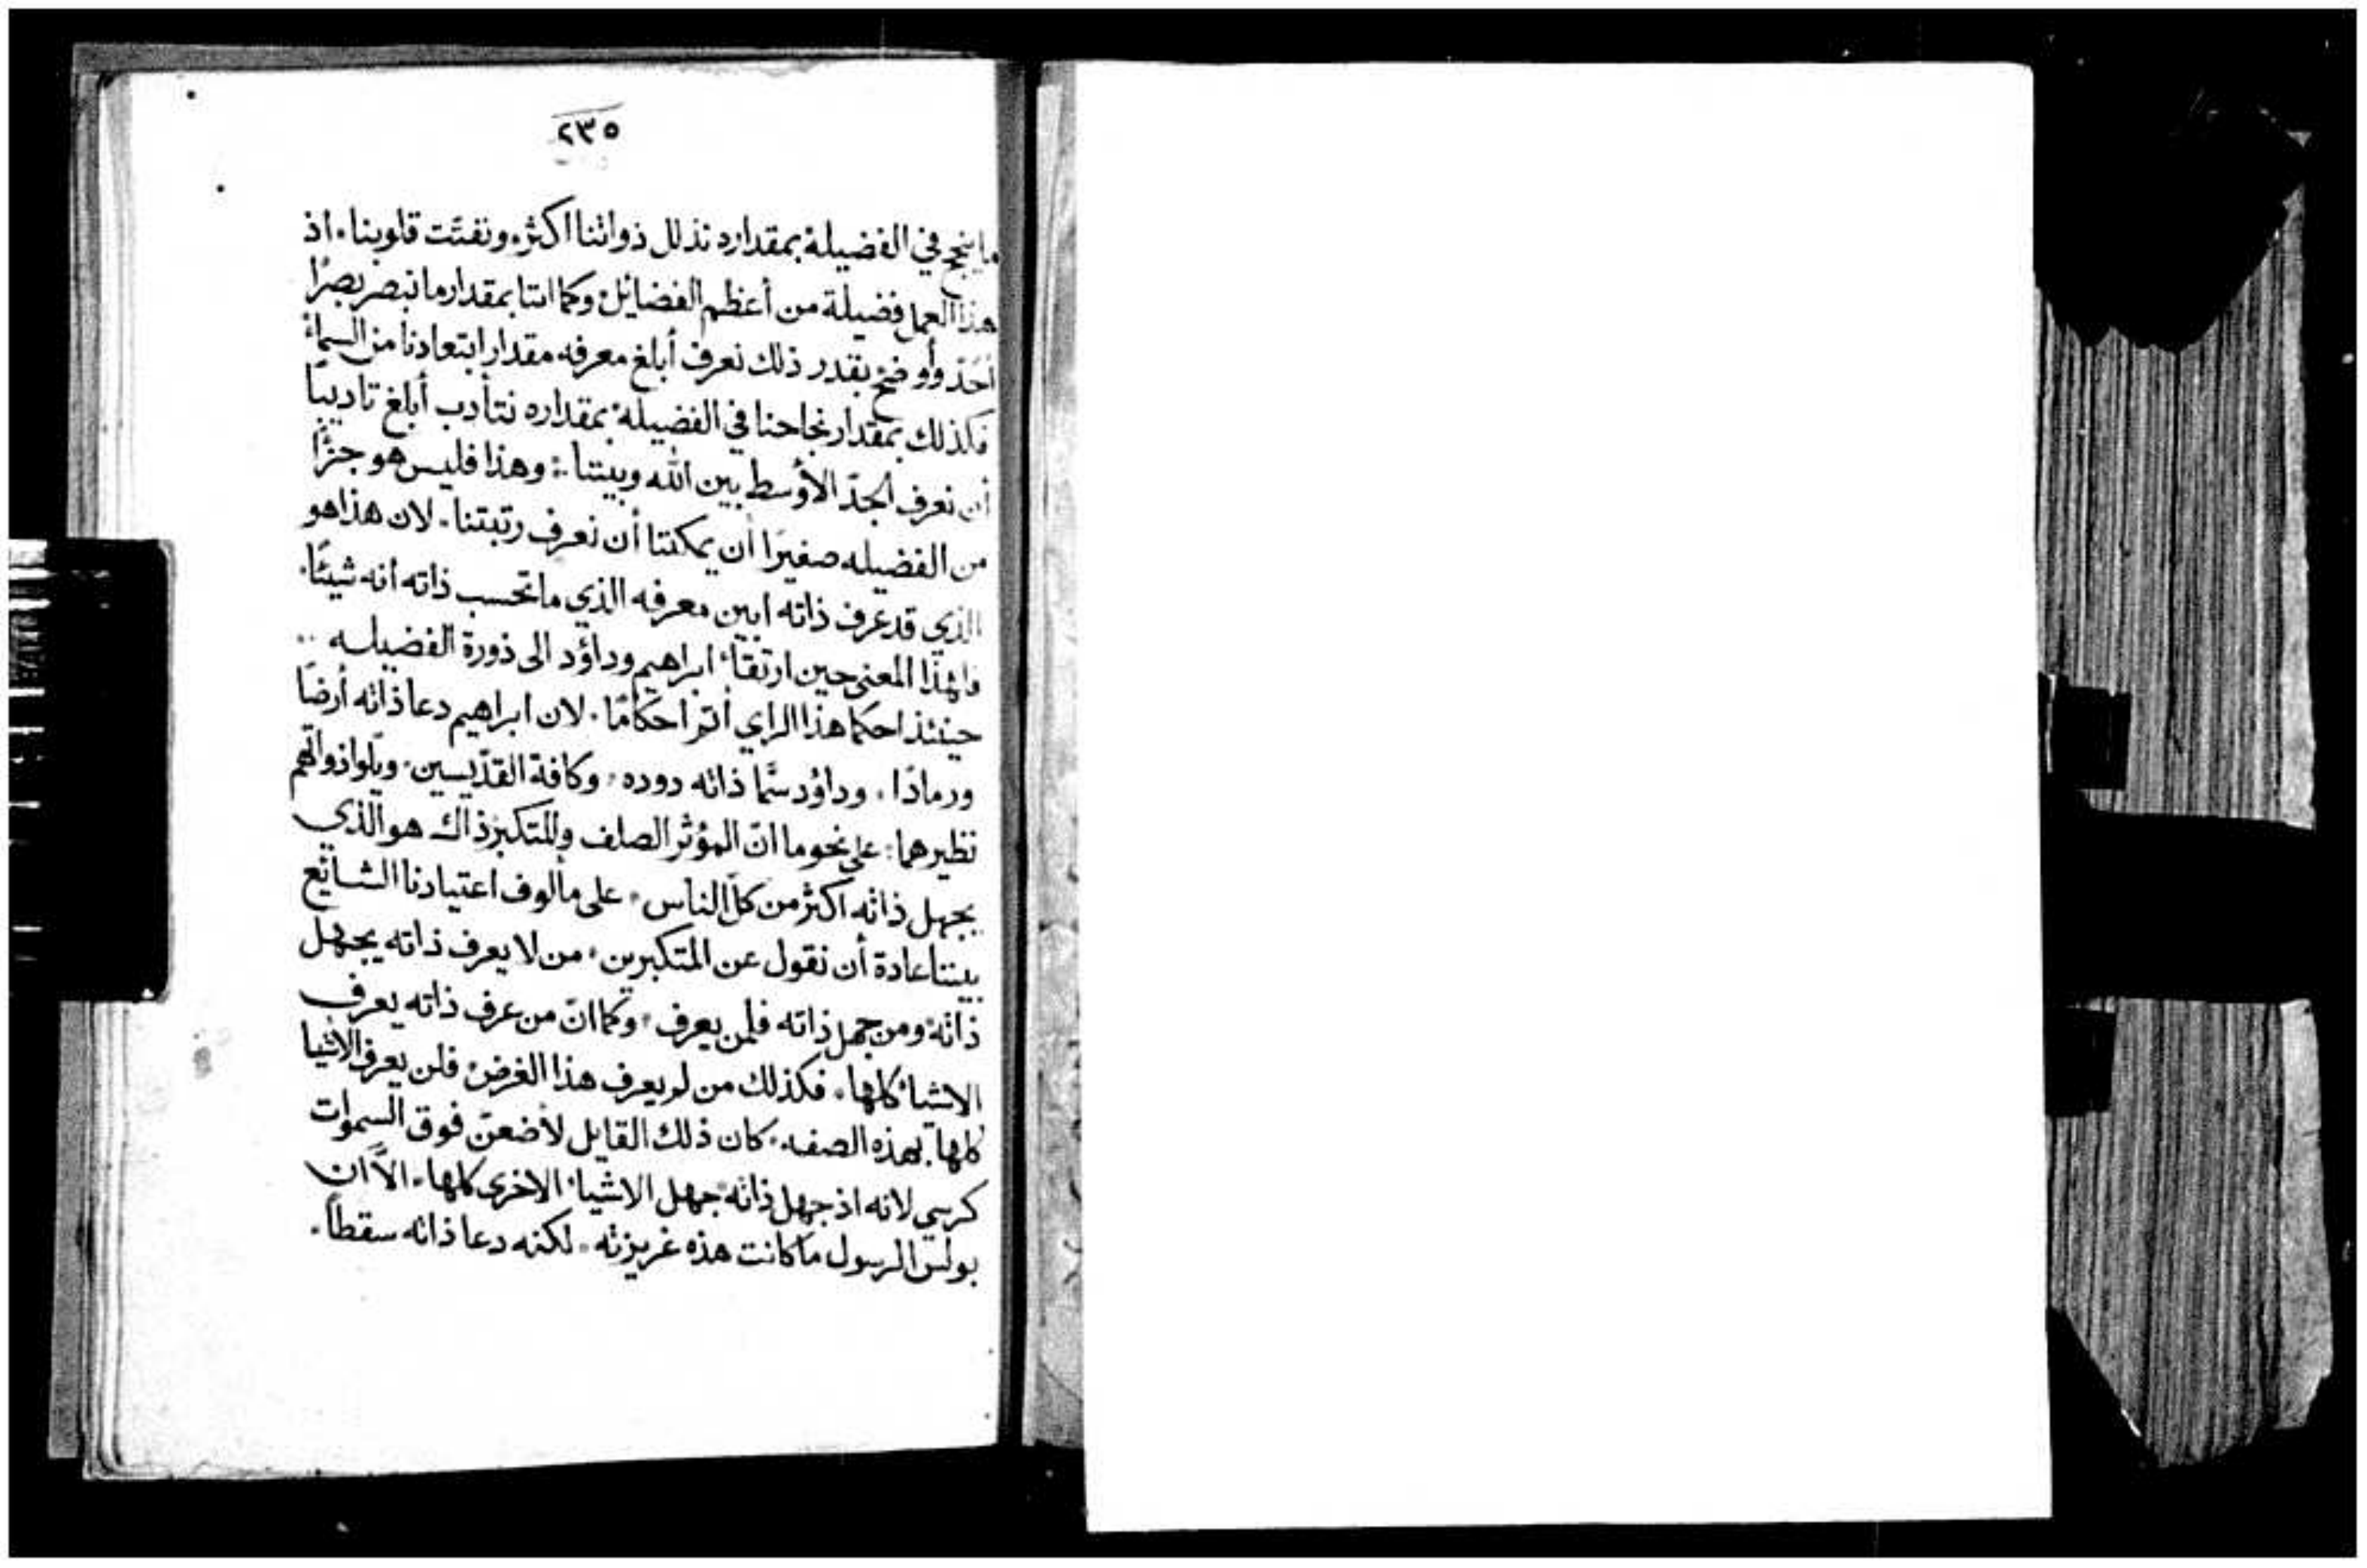 ٢٣٥
ما ينجح في الفضيلة بمقداره نذلل ذواتنا اكثر ونفتت قلوبنا. اذ
هذا العمل فضيلة من أعظم الفضائل وكما اننا بمقدار ما نبصر بصرًا
أحدّ وأوضح بقدر ذلك نعرف أبلغ معرفه مقدار ابتعادنا من السماء
فكذلك بمقدار نجاحنا في الفضيلة بمقداره نتأدب أبلغ تاديبًا
أن نعرف الحدّ الأوسط بين الله وبيننا: وهذا فليس هو جزًا
من الفضيله صغيرًا أن يمكننا أن نعرف رتبتنا. لان هذا هو
الذي قد عرف ذاته ابين معرفه الذي ما تحسب ذاته أنه شيئًا.
فلهذا المعنى حين ارتقتاء ابراهيم وداؤد الى ذورة الفضيله ..
حينئذ احكما هذا الراي أتم احكامًا. لان ابراهيم دعا ذاته أرضًا
ورمادًا. وداؤد سمّا ذاته دوده. وكافة القدّيسين. ويلوا ذواتهم
نظيرهما: على نحو ما انّ المؤثر الصلف والمتكبر ذاك هو الذي
يجهل ذاته اكثر من كلّ الناس. على مألوف اعتيادنا الشائع
بيننا عادة أن نقول عن المتكبرين. من لا يعرف ذاته يجهل
ذاته ومن جهل ذاته فلمن يعرف. وكما انّ من عرف ذاته يعرف
الاشياء كلها. فكذلك من لم يعرف هذا الغرض فلن يعرف الاشيا
كلها. بهذه الصفه. كان ذلك القايل لأضعنّ فوق السموات
كرسي لانه اذ جهل ذاته جهل الاشياء الاخرى كلها. الاّ ان
بولس الرسول ما كانت هذه غريزته. لكنه دعا ذاته سقطاً.